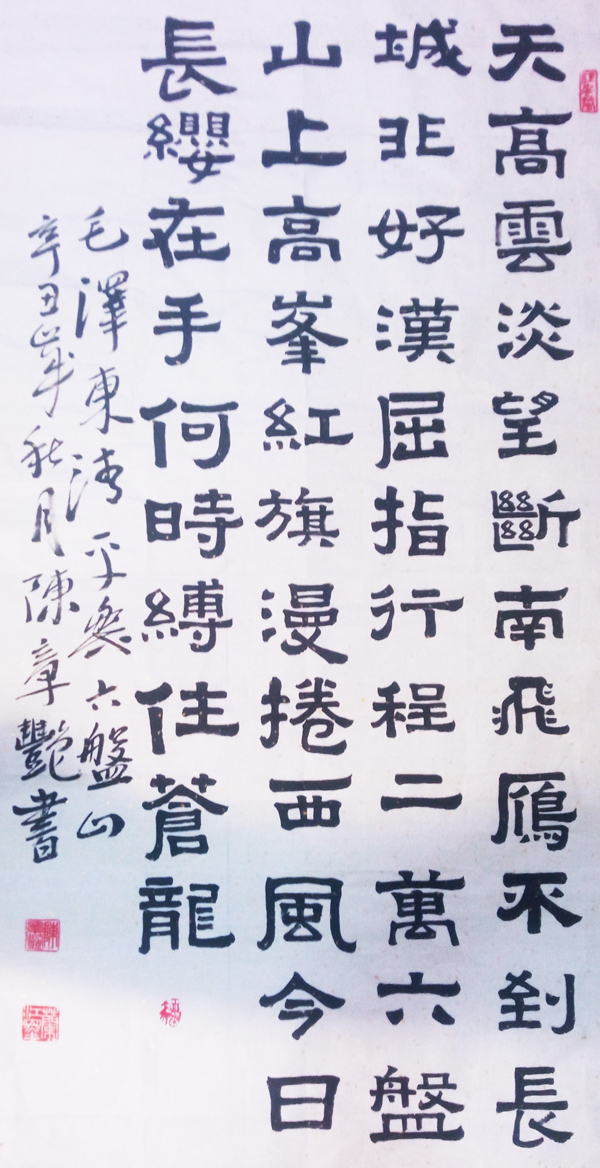 天高雲淡望斷南飛鴈不到長
城非好漢屈指行程二萬六盤
山上高峯紅旗漫捲西風今日
長纓在手何時縛住蒼龍
毛澤東清平樂六盤山
辛丑年秋月陳章艷書